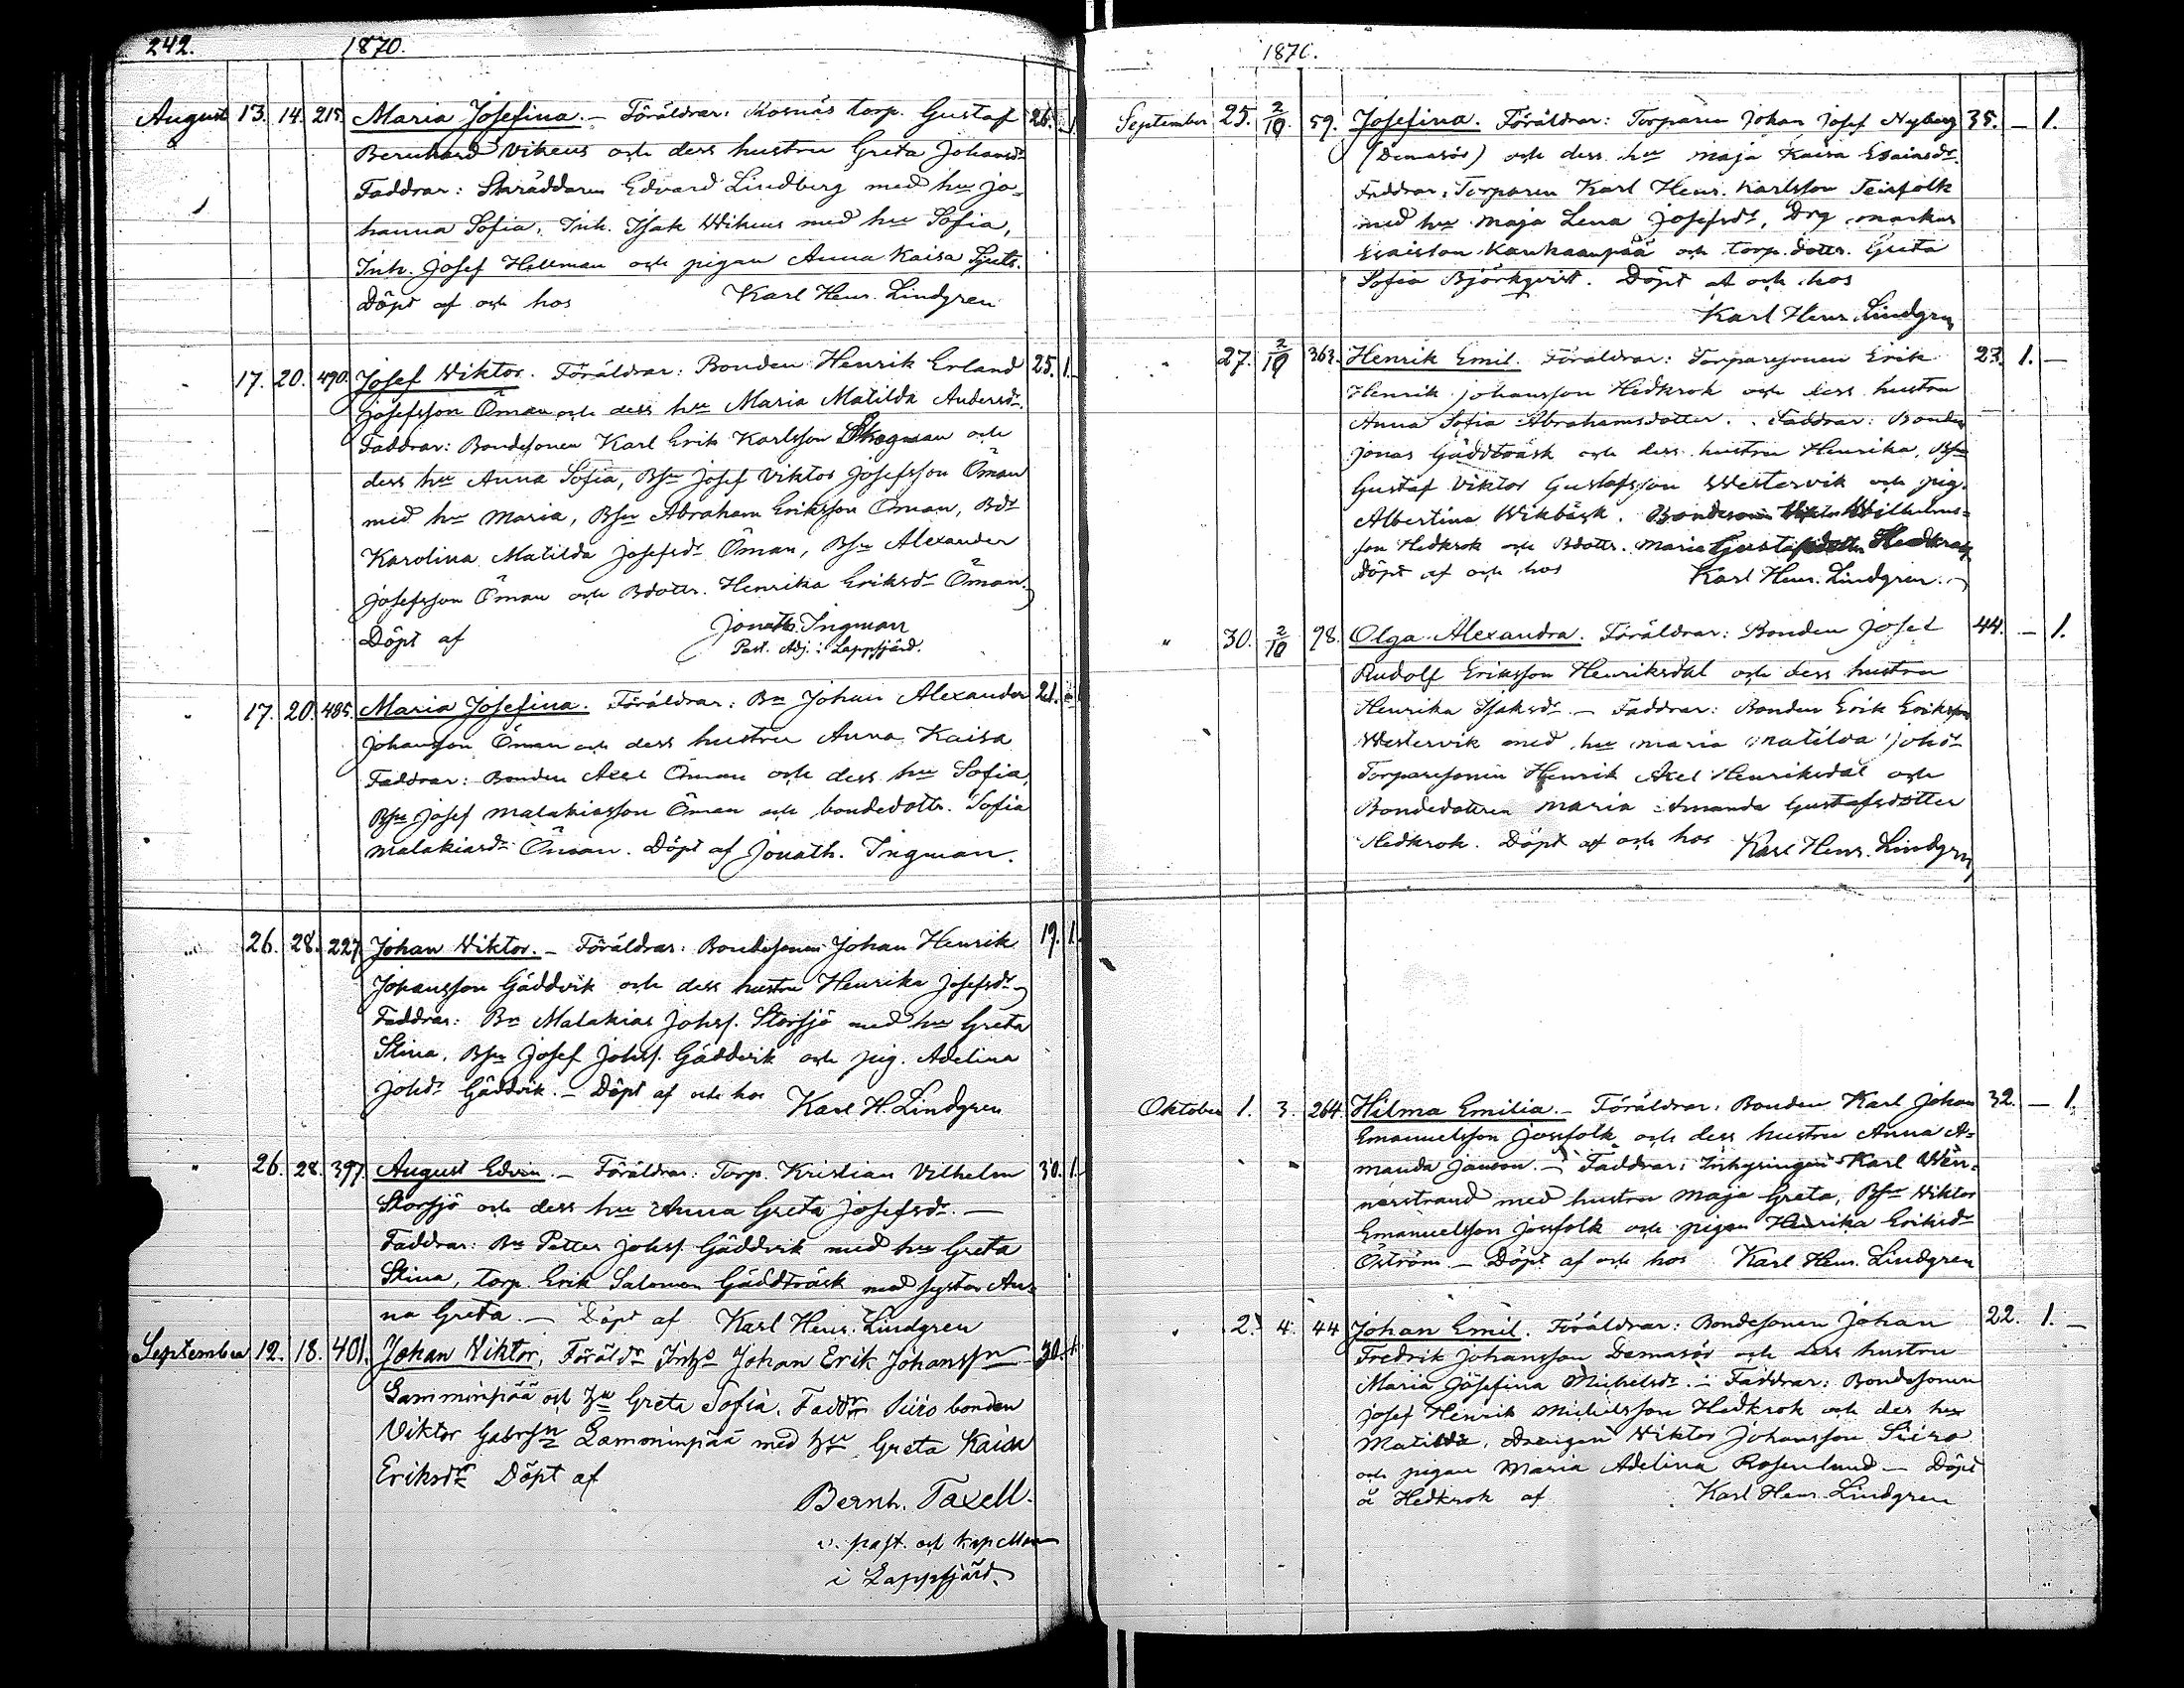 242. 1870.
August 13. 14. 215. Maria Josefina. – Föräldrar: Mosnäs torp. Gustaf 26.
Bernhard Vikeus och dess hustru Greta Johansdr
Faddrar: Skräddaren Edvard Lindberg med hu Jo-
hanna Sofia, Inh. Isak Wikeus med hu Sofia,
Inh. Josef Hellman och pigan Anna Kaisa
Döpt af och hos Karl Henr. Lindgren
17. 20. 490. Josef Wiktor. Föräldrar: Bonden Henrik Erland 25. 1.
Josefsson Öman och dess hu Maria Matilda Andersdr.
Faddrar: Bondesonen Karl Erik Karlsson Skogman och
dess hu Anna Sofia, Bsn Josef Viktor Josefsson Öman
med hu Maria, Bsn Abraham Eriksson Öman, Bdr
Karolina Matilda Josefsdr Öman, Bsn Alexander
Josefsson Öman och Bdottr. Henrika Eriksdr Öman.
Döpt af Jonath. Ingman
Past. Adj. i Lappfjärd.
" 17. 20. 485. Maria Josefina. Föräldrar: Bn Johan Alexander 21. –
Johansson Öman och dess hustru Anna Kaisa
Faddrar: Bonden Axel Öman och dess hu Sofia,
Bsn Josef Malakiasson Öman och bondedottr. Sofia
Malakiasdr Öman. Döpt af Jonath. Ingman.
" 26. 28. 227. Johan Wiktor. – Föräldrar: Bondesonen Johan Henrik 19. 1.
Johansson Gäddvik och dess hustru Henrika Josefsdr
Faddrar: Bn Malakias Johss. Storsjö med hu Greta
Stina, Bsn Josef Johss. Gäddvik och pig. Adelina
Johdr Gäddvik. – Döpt af och hos Karl H. Lindgren
" 26. 28. 397. August Edvin. – Föräldrar: Torp. Kristian Vilhelm 30. 1.
Storsjö och dess hu Anna Greta Josefsdr. –
Faddrar: Bn Petter Johss. Gäddvik med hu Greta
Stina, torp. Erik Salomon Gäddträsk med syster An-
na Greta. – Döpt af Karl Henr. Lindgren
September 12. 18. 401. Johan Viktor, Föräldr Johan Erik Johanssn 30. 1.
Lamminpää och hu Greta Sofia. Faddr Siiro bonden
Viktor Gabrssn Lamminpää med hu Greta Kaisa
Eriksdr Döpt af
Bernh. Taxell.
v. past. och kapellan
i Lappfjärd.
1870.
September 25. 2/10. 59. Josefina. Föräldrar: Torparen Johan Josef Nyberg 35. – 1.
(Damasös) och dess hu Maja Kaisa Esaiasdr.
Faddrar: Torparen Karl Henr. Karlsson Teirfolk
med hu Maja Lena Josefsdr, Drg Markus
Esaisson Kankaanpää och torp. dottr. Greta
Sofia Björkqvist. Döpt af och hos
Karl Henr. Lindgren
" 27. 2/10 363. Henrik Emil. Föräldrar: Torparesonen Erik 23. 1. –
Henrik Johansson Hedkrok och dess hustru
Anna Sofia Abrahamsdotter. Faddrar: Bonden
Jonas Gäddträsk och dess hustru Henrika, Bsn
Gustaf Viktor Gustafsson Westervik och pig.
Albertina Wikbäck. Bondesonen Wilhelms-
son Hedkrok och Bdottr. Maria Gustafsdotter Hedkrok
Döpt af och hos Karl Henr. Lindgren.
" 30. 2/10 98. Olga Alexandra. Föräldrar: Bonden Josef 44. – 1.
Rudolf Eriksson Henriksdal och dess hustru
Henrika Isaksdr. – Faddrar: Bonden Erik Eriksson
Westervik med hu Maria Matilda Johdr
Torparesonen Henrik Axel Henriksdal och
Bondedottren Maria Amanda Gustafsdotter
Hedkrok. Döpt af och hos Karl Henr. Lindgren
Oktober 1. 3. 264. Hilma Emilia. – Föräldrar: Bonden Karl Johan 32. – 1.
Emanuelsson Jossfolk och dess hustru Anna A-
manda Janson. – Faddrar: Inhysingen Karl Wen-
närstrand med hustru Maja Greta, Bsn Viktor
Emanuelsson Jossfolk och pigan Henrika Eriksdr
Öström – Döpt af och hos Karl Henr. Lindgren
" 2. 4. 44 Johan Emil. Föräldrar: Bondesonen Johan 22. 1. –
Fredrik Johansson Damasös och dess hustru
Maria Josefina Mickelsdr. – Faddrar: Bondesonen
Josef Henrik Michelsson Hedkrok och des hu
Matilda, Drengen Viktor Johansson Siiro
och pigan Maria Adelina Rosenlund – Döpt
å Hedkrok af Karl Henr. Lindgren